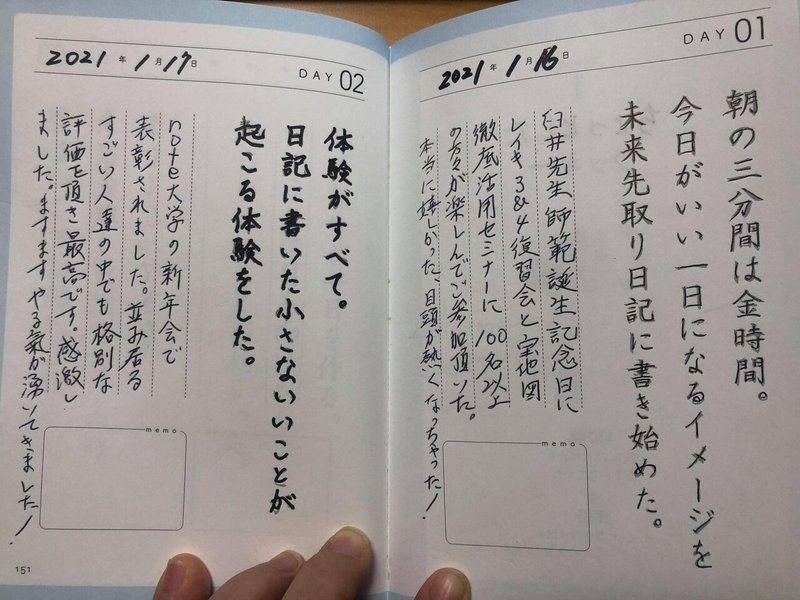 DAY 01
2021年1月16日
朝の三分間は金時間。
今日がいい一日になるイメージを
未来先取り日記に書き始めた。
臼井先生師範誕生記念日に
レイキ3&4復習会と宝地図
徹底活用セミナーに100名以上
の方々が楽しんでご参加頂いた。
本当に嬉しかった、目頭が熱くなっちゃった!
memo
DAY 02
2021年1月17日
体験がすべて。
日記に書いた小さないいことが
起こる体験をした。
note大学の新年会で
表彰されました。並み居る
すごい人達の中でも格別な
評価を頂き最高です。感激し
ました。ますますやる氣が湧いてきました!
memo
151